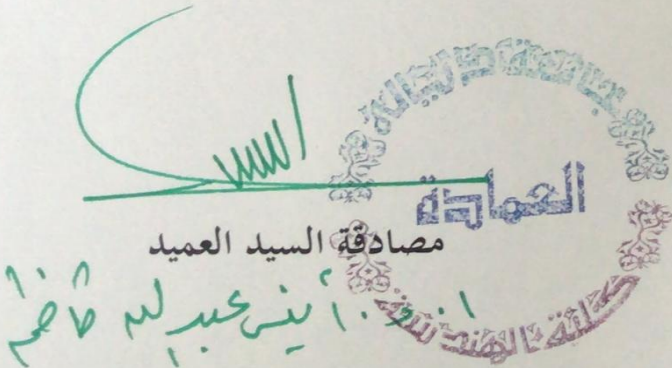 العمادة
مصادقة السيد العميد
ا.د. أنيس عبد الله كاظم
كلية الهندسة